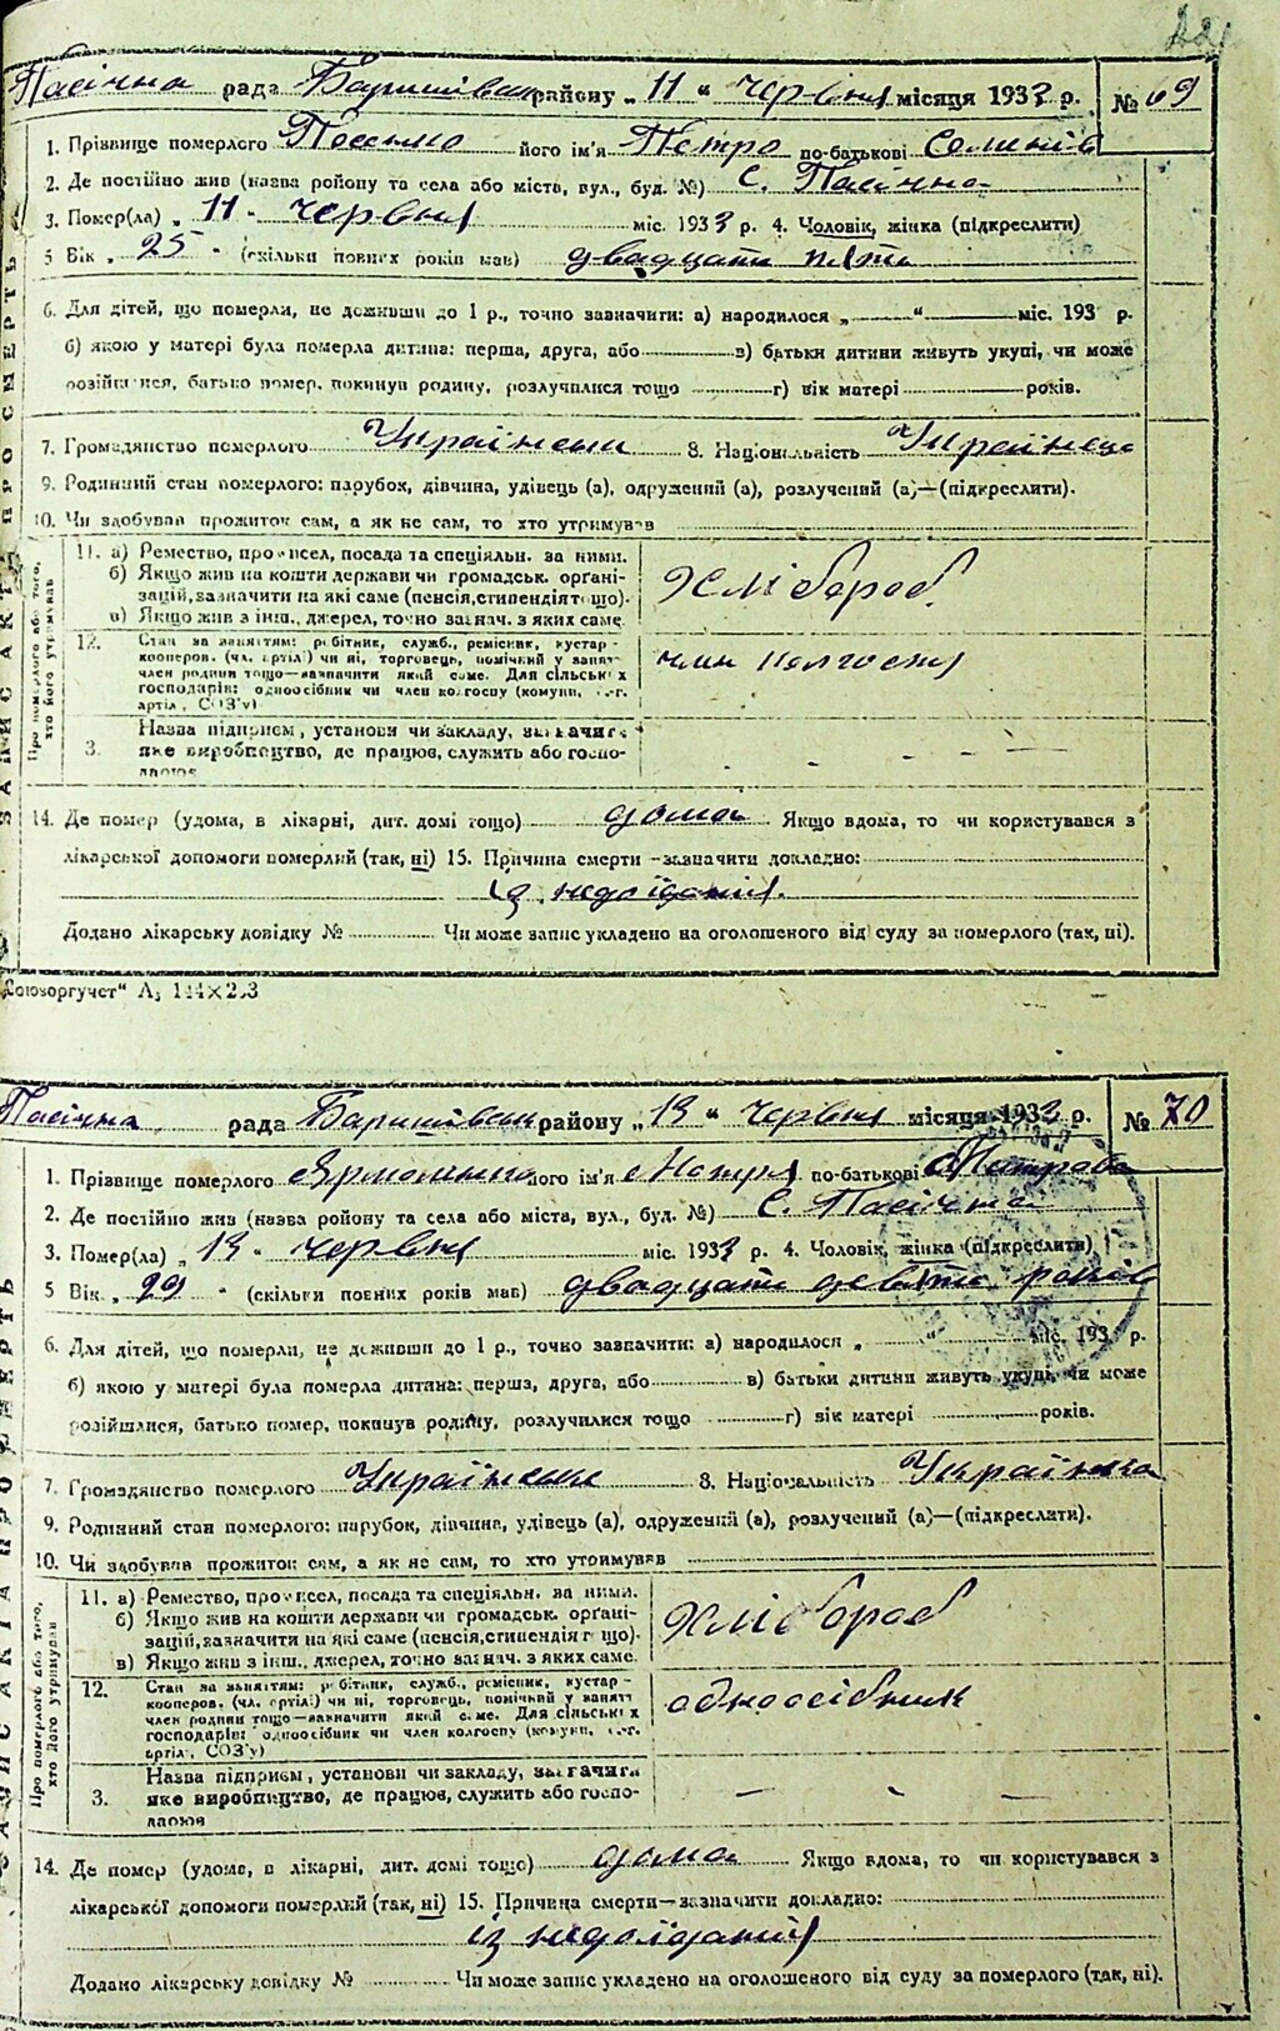 Пасічна рада Баришівськ району „11“ червня місяця 1933 р. № 69
1. Прізвище померлого його ім'я Петро по-батькові Семенів
2. Де постійно жив (назва району та села або міста, вул., буд. №) С. Пасічна
3. Помер(ла) „11“ червня міс. 1933 р. 4. Чоловік, жінка (підкреслити)
5 Вік „25“ (скільки повних років мав) двадцати пять
6. Для дітей, що померли, не доживши до 1 р., точно зазначити: а) народилося „ “ міс. 193 р.
б) якою у матері була померла дитина: перша, друга, або в) батьки дитини живуть укупі, чи може
розійшлися, батько помер, покинув родину, розлучилися тощо г) вік матері років.
7. Громадянство померлого Українськ 8. Національність Українець
9. Родинний стан померлого: парубок, дівчина, удівець (а), одружений (а), розлучений (а)—(підкреслити).
10. Чи здобував прожиток сам, а як не сам, то хто утримував
ЗАПИС АКТА ПРО СМЕРТЬ
Про померлого або того, хто його утримував
11. а) Ремество, промисел, посада та спеціяльн. за ними.
б) Якщо жив на кошти держави чи громадськ. орґані-
зацій, зазначити на які саме (пенсія, стипендія тощо).
в) Якщо жив з інш., джерел, точно зазнач. з яких саме.
Хлібороб
12. Стан за заняттям: робітник, служб., ремісник, кустар-
кооперов. (чл. артілі) чи ні, торговець, помічний у занятт
член родини тощо—зазначити який саме. Для сільських
господарів: одноосібник чи член колгоспу (комуни, с.-г.
артіл., СОЗ'у)
член колгоспу
3. Назва підприєм, установи чи закладу, зазначити
яке виробництво, де працює, служить або госпо-
дарює
14. Де помер (удома, в лікарні, дит. домі тощо) дома Якщо вдома, то чи користувався з
лікарської допомоги померлий (так, ні) 15. Причина смерти—зазначити докладно:
із недоїдания.
Додано лікарську довідку № Чи може запис укладено на оголошеного від суду за померлого (так, ні).
Союзоргучет“ А₅ 144×203
Пасічна рада Баришівськ району „13“ червня місяця 1933 р. № 70
1. Прізвище померлого Ярмоленко його ім'я Мотря по-батькові Петрова
2. Де постійно жив (назва району та села або міста, вул., буд. №) С. Пасічна
3. Помер(ла) „13“ червня міс. 1933 р. 4. Чоловік, жінка (підкреслити)
5 Вік „29“ (скільки повних років мав) двадцати девять років
6. Для дітей, що померли, не доживши до 1 р., точно зазначити: а) народилося „ “ міс. 193 р.
б) якою у матері була померла дитина: перша, друга, або в) батьки дитини живуть укупі, чи може
розійшлися, батько помер, покинув родину, розлучилися тощо г) вік матері років.
7. Громадянство померлого Українське 8. Національність Українка
9. Родинний стан померлого: парубок, дівчина, удівець (а), одружений (а), розлучений (а)—(підкреслити).
10. Чи здобував прожиток сам, а як не сам, то хто утримував
ЗАПИС АКТА ПРО СМЕРТЬ
Про померлого або того, хто його утримував
11. а) Ремество, промисел, посада та спеціяльн. за ними.
б) Якщо жив на кошти держави чи громадськ. орґані-
зацій, зазначити на які саме (пенсія, стипендія тощо).
в) Якщо жив з інш., джерел, точно зазнач. з яких саме.
Хлібороб
12. Стан за заняттям: робітник, служб., ремісник, кустар-
кооперов. (чл. артілі) чи ні, торговець, помічний у занятт
член родини тощо—зазначити який саме. Для сільських
господарів: одноосібник чи член колгоспу (комуни, с.-г.
артіл., СОЗ'у)
одноосібник
3. Назва підприєм, установи чи закладу, зазначити
яке виробництво, де працює, служить або госпо-
дарює
14. Де помер (удома, в лікарні, дит. домі тощо) дома Якщо вдома, то чи користувався з
лікарської допомоги померлий (так, ні) 15. Причина смерти—зазначити докладно:
із недоїдания
Додано лікарську довідку № Чи може запис укладено на оголошеного від суду за померлого (так, ні).